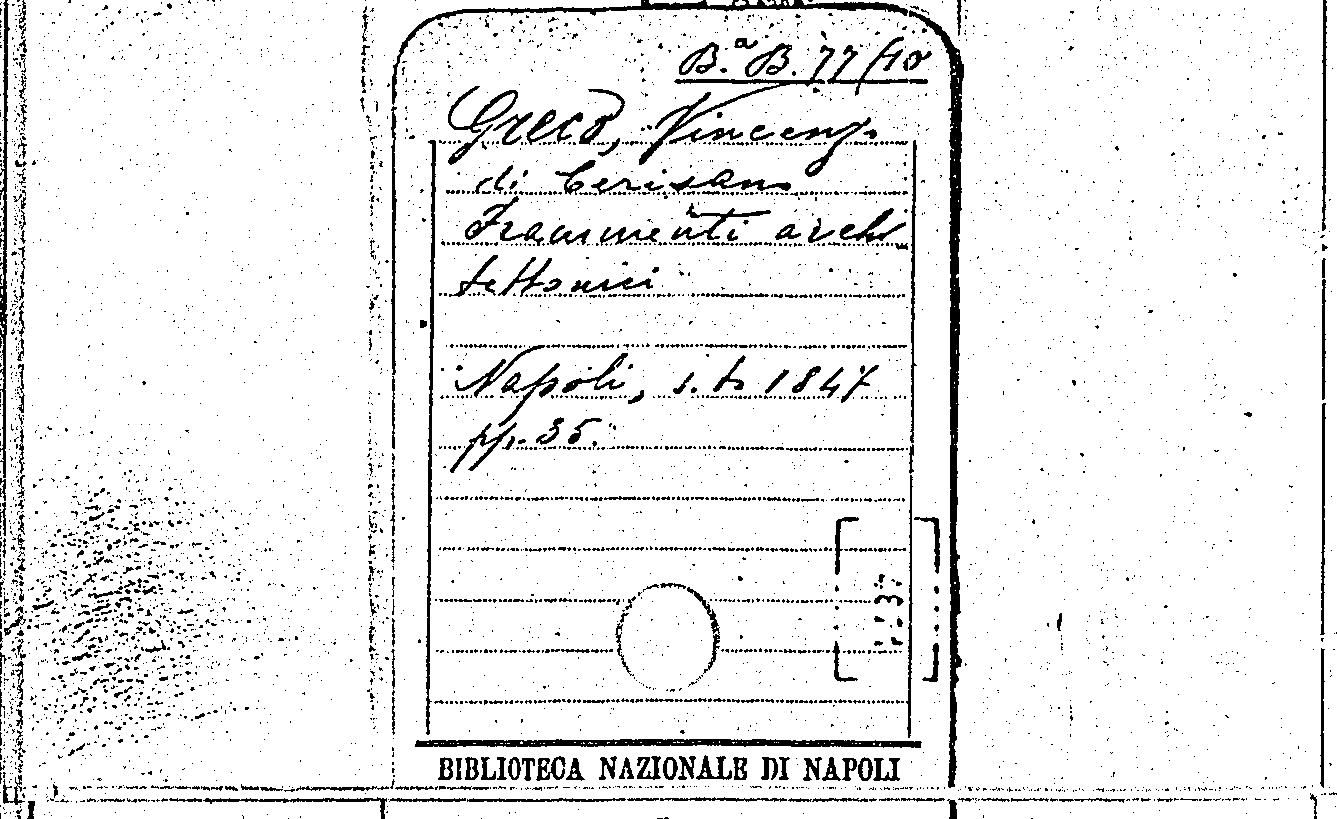 B.ª B. 77/10
Greco, Vincenzo
di Cerisano
Frammenti archi
tettonici
Napoli, s. t. 1847
pp. 35.
BIBLIOTECA NAZIONALE DI NAPOLI